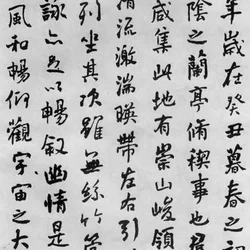 年歲在癸丑暮春
陰之蘭亭脩稧事也
咸集此地有崇山峻領
清流激湍暎帶左右引
列坐其次雖無絲竹
詠亦足以暢叙幽情是
風和暢仰觀宇宙之大